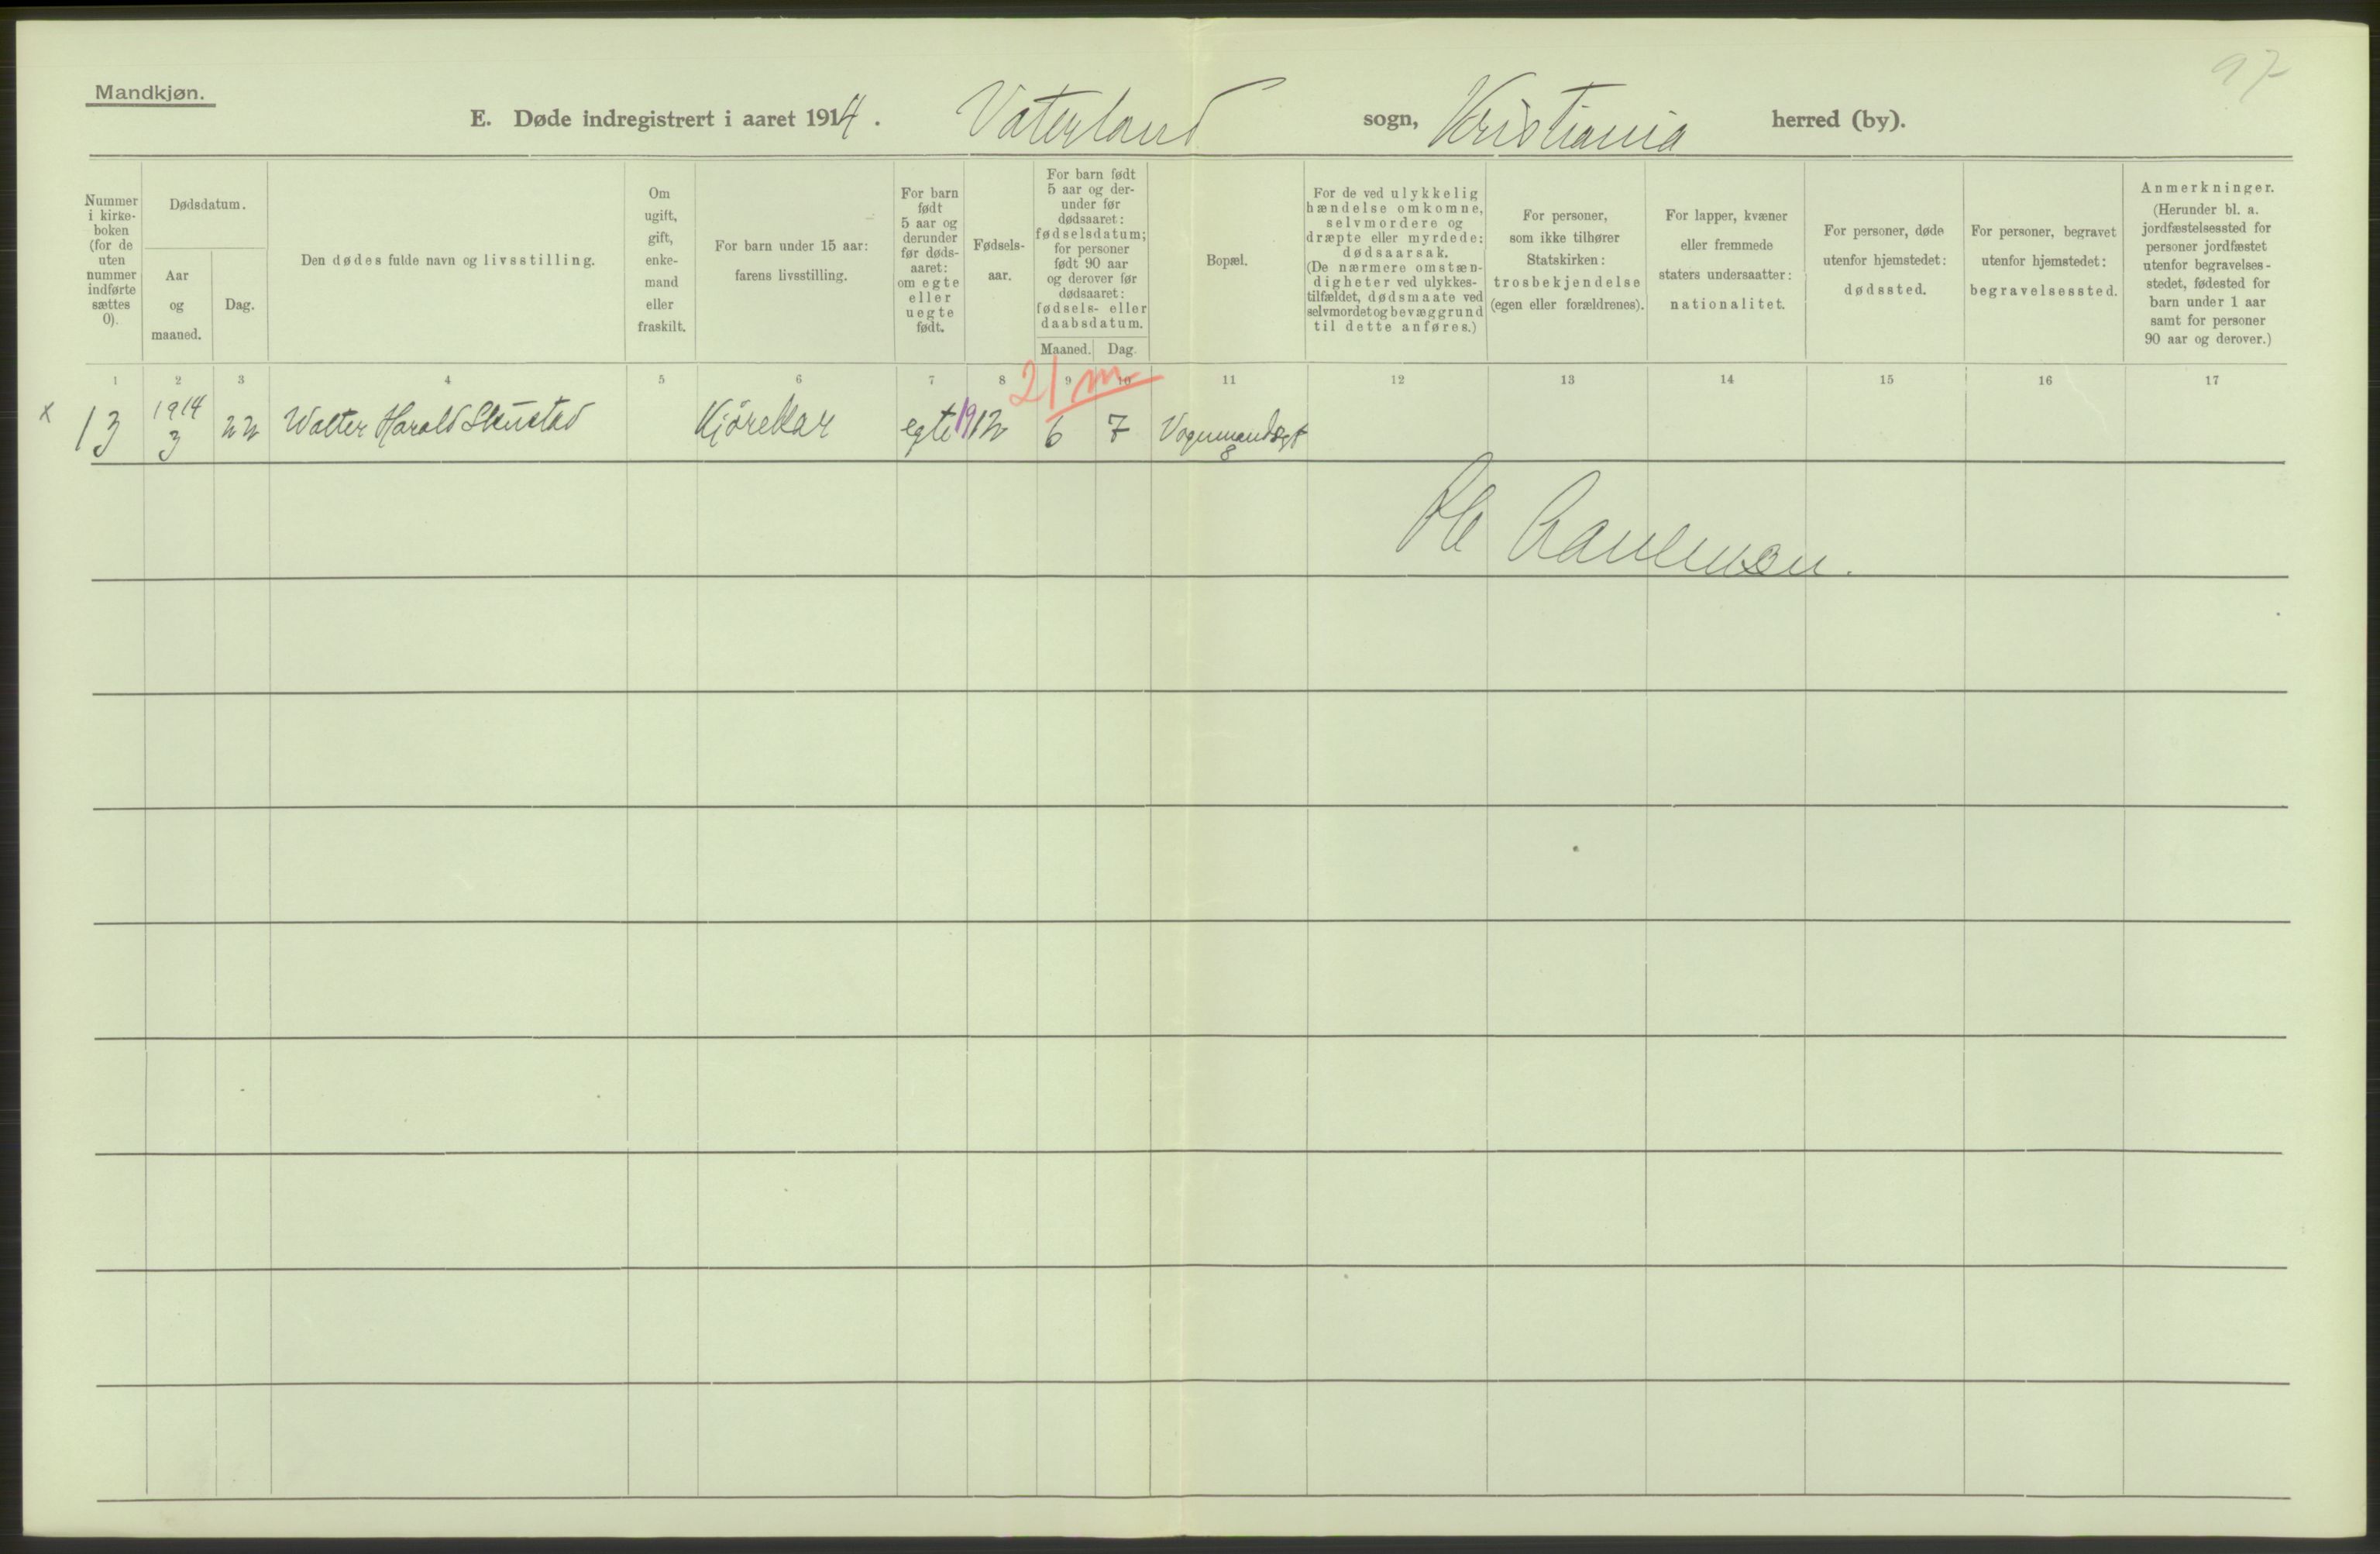 97
Mandkjøn.
E. Døde indregistrert i aaret 1914. Vaterland sogn, Kristiania herred (by).
Nummer
i kirke-
boken
(for de
uten
nummer
indførte
sættes
0).
Dødsdatum.
Aar
og
maaned.
Dag.
Den dødes fulde navn og livsstilling.
Om
ugift,
gift,
enke-
mand
eller
fraskilt.
For barn under 15 aar:
farens livsstilling.
For barn
født
5 aar og
derunder
før døds-
aaret:
om egte
eller
uegte
født.
Fødsels-
aar.
For barn født
5 aar og der-
under før
dødsaaret:
fødselsdatum;
for personer
født 90 aar
og derover før
dødsaaret:
fødsels- eller
daabsdatum.
Maaned. Dag.
Bopæl.
For de ved ulykkelig
hændelse omkomne,
selvmordere og
dræpte eller myrdede:
dødsaarsak.
(De nærmere omstæn-
digheter ved ulykkes-
tilfældet, dødsmaate ved
selvmordet og bevæggrund
til dette anføres.)
For personer,
som ikke tilhører
Statskirken:
trosbekjendelse
(egen eller forældrenes).
For lapper, kvæner
eller fremmede
staters undersaatter:
nationalitet.
For personer, døde
utenfor hjemstedet:
dødssted.
For personer, begravet
utenfor hjemstedet:
begravelsessted.
Anmerkninger.
(Herunder bl. a.
jordfæstelsessted for
personer jordfæstet
utenfor begravelses-
stedet, fødested for
barn under 1 aar
samt for personer
90 aar og derover.)
1 2 3 4 5 6 7 8 9 10 11 12 13 14 15 16 17
21 m
x 13 1914 3 22 Walter Harald Skustad Kjørekar egte 1912 6 7 Vognmandsgt
8